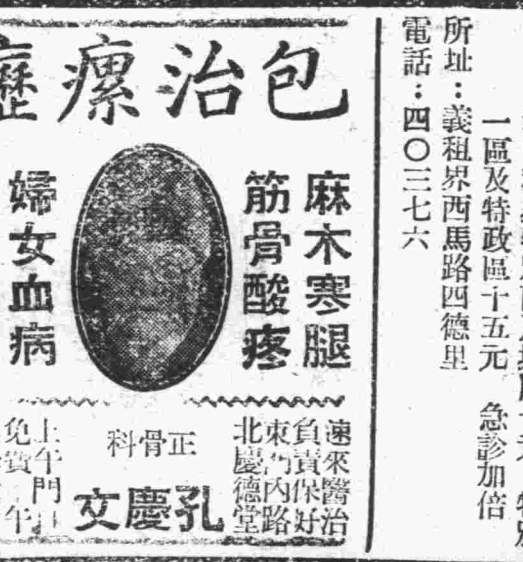 一區及特政區十五元 急診加倍
所址：義租界西馬路四德里
電話：四〇三七六
包治瘰癧
麻木寒腿
筋骨酸疼
婦女血病
速來醫治
負責保好
東門內路
北慶德堂
正骨科
孔慶文
上午門
免費